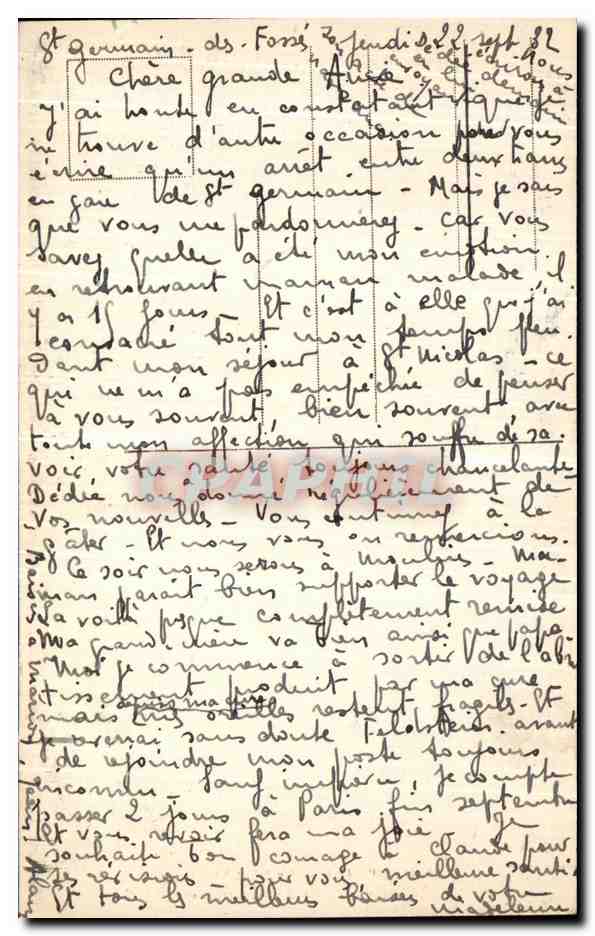 St germain-ds-Fossés jeudi 22 sept 32
Chère grande Amie
j'ai honte en constatant que je
ne trouve d'autre occasion pour vous
écrire qu'un arrêt entre deux trains
en gare de St germain - Mais je sais
que vous me pardonnerez - car vous
savez quelle a été mon émotion
en retrouvant maman malade, il
y a 15 jours - Et c'est à elle que j'ai
consacré tout mon temps pen
dant mon séjour à St Nicolas - ce
qui ne m'a pas empêchée de penser
à vous souvent bien souvent avec
toute mon affection qui souffre de sa
voir votre santé toujours chancelante
Dédée nous donne régulièrement de
vos nouvelles - Vous continuez à la
gâter - Et nous vous en remercions.
Ce soir nous serons à Moulins - Ma
man paraît bien supporter le voyage
La voilà presque complètement remise
Ma grand-mère va bien ainsi que papa
Moi je commence à sortir de l'abru
tissement produit par ma cure
mais mes oreilles restent fragiles - Et
je verrai sans doute avant
de rejoindre mon poste toujours
inconnu - Sauf imprévu, je compte
passer 2 jours à Paris fin septembre
Et vous revoir fera ma joie Je
souhaite bon courage à Claude pour
ses révisions pour vous meilleure santé
Et tous les meilleurs baisers de votre
Madeleine
CPARAMA